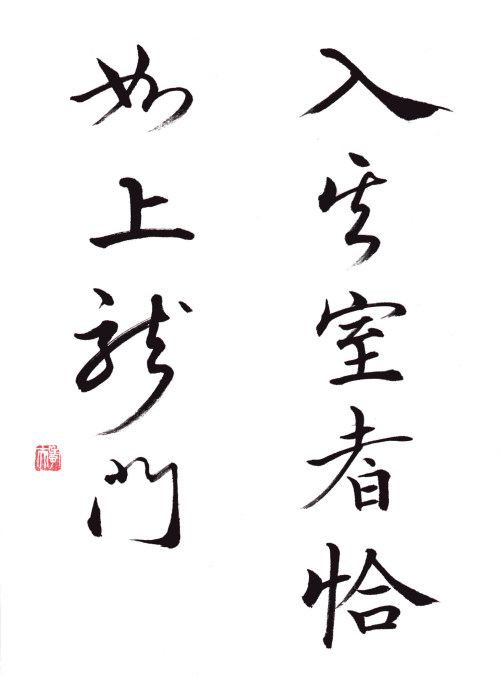 入其室者恰
如上龍門